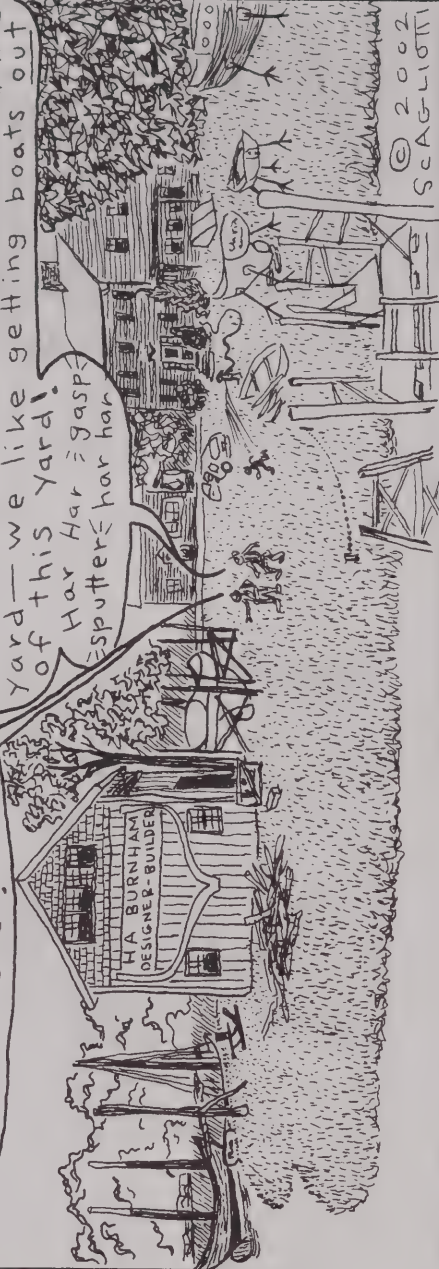 yard—we like getting boats out
of this yard!
Har Har gasp
sputter har har
HA BURNHAM
DESIGNER-BUILDER
© 2002
SCAGLIOTTI